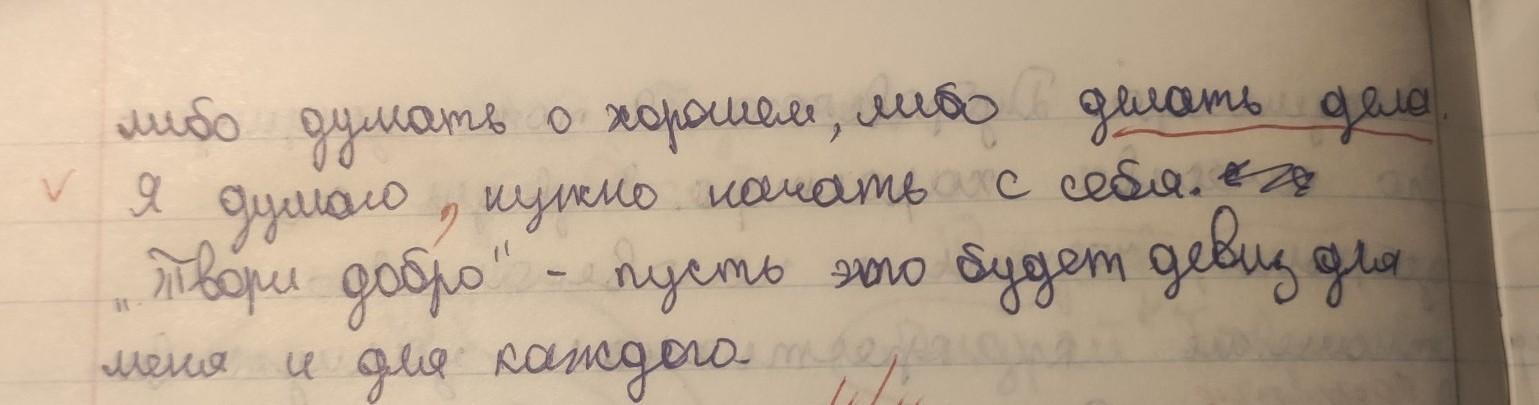 либо думать о хорошем, либо делать дела.
Я думаю, нужно начать с себя.
„Твори добро" - пусть это будет девиз для
меня и для каждого.